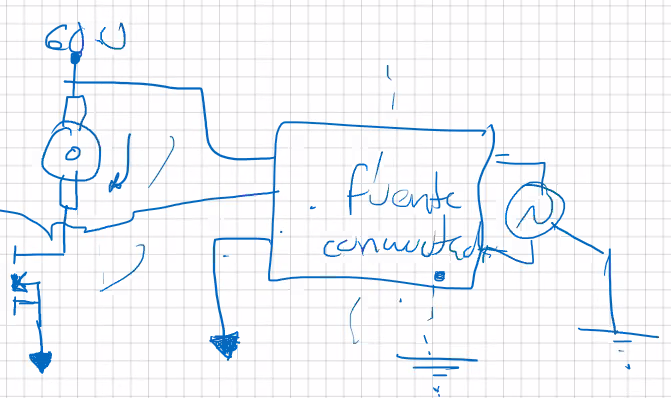 fuente
conmutada